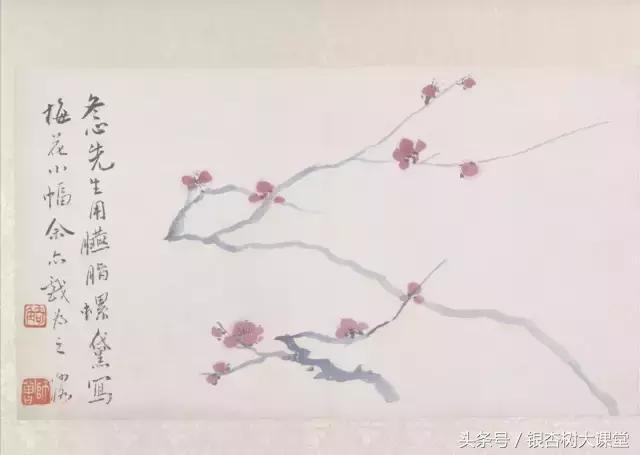 冬心先生用臙脂螺黛寫
梅花小幅余亦戲為之
師曾
头条号／银杏树大课堂